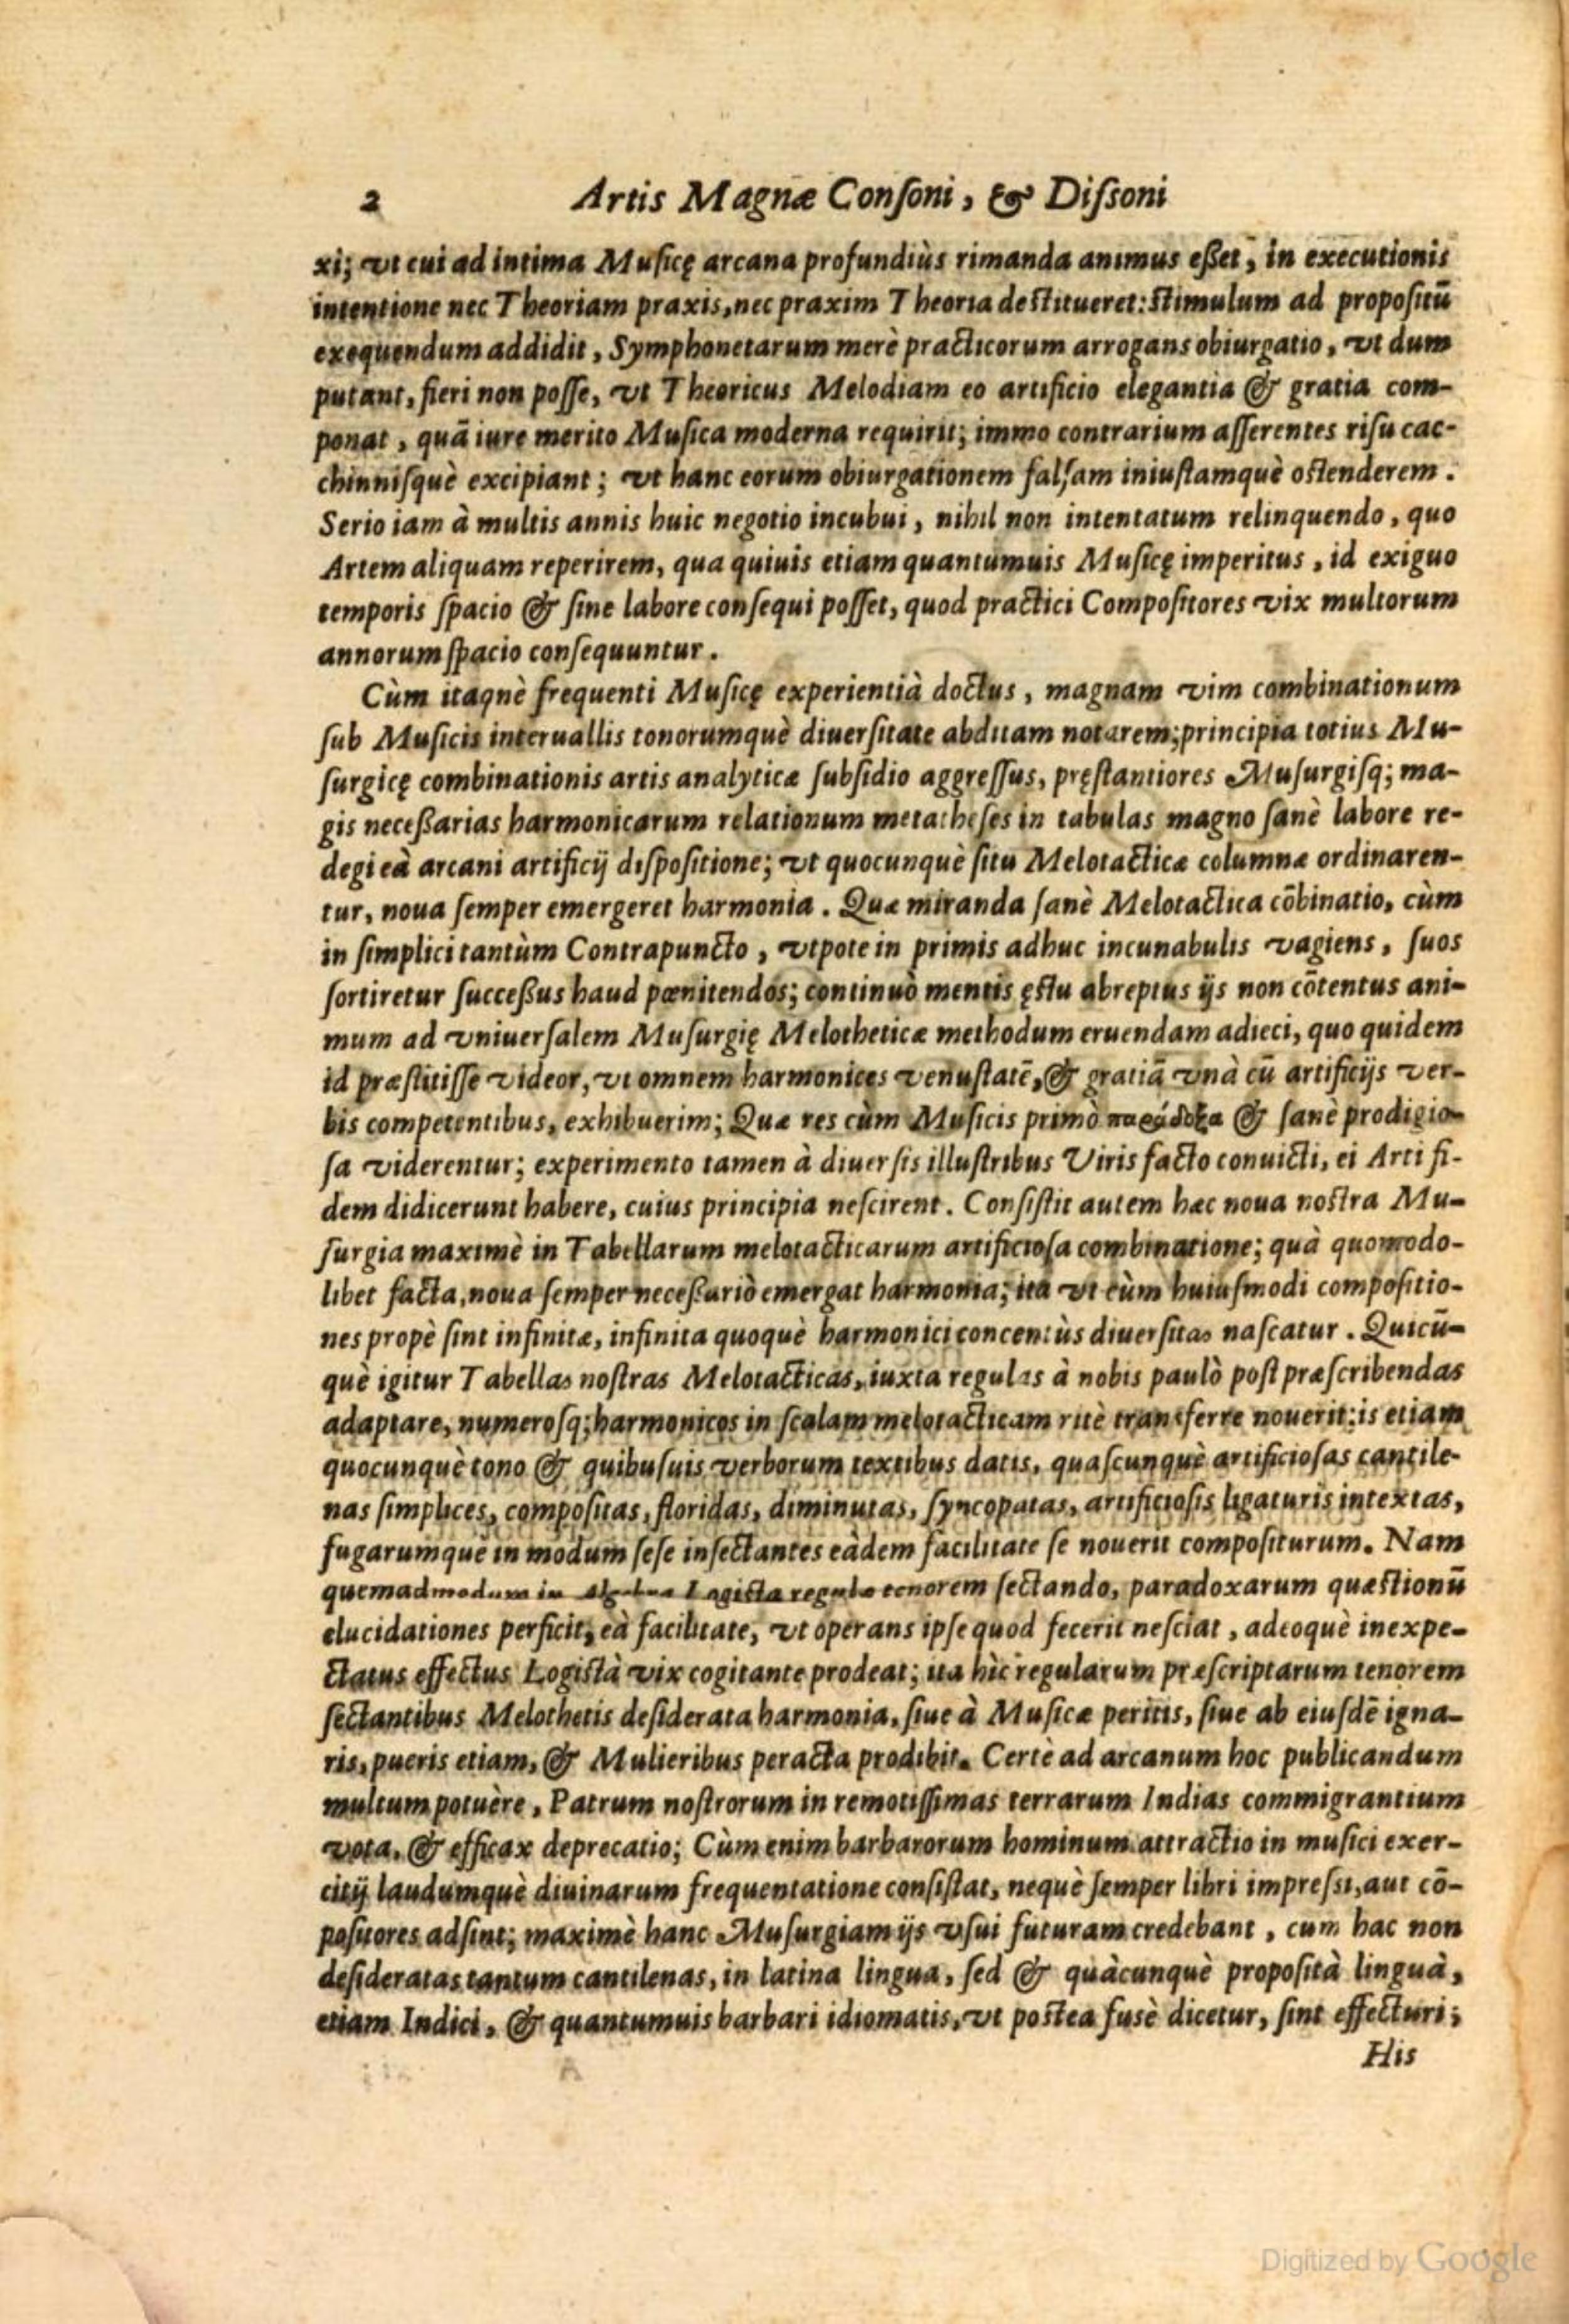 2 Artis Magnæ Conſoni, & Diſsoni
xi; vt cui ad intima Muſicę arcana profundiùs rimanda animus eßet, in executionis
intentione nec Theoriam praxis, nec praxim Theoria deſtitueret: ſtimulum ad propoſitũ
exequendum addidit, Symphonetarum merè practicorum arrogans obiurgatio, vt dum
putant, fieri non poſſe, vt Theoricus Melodiam eo artificio elegantia & gratia com-
ponat, quã iure merito Muſica moderna requirit; immo contrarium aſſerentes riſu cac-
chinniſquè excipiant; vt hanc eorum obiurgationem falſam iniuſtamquè oſtenderem.
Serio iam à multis annis huic negotio incubui, nihil non intentatum relinquendo, quo
Artem aliquam reperirem, qua quiuis etiam quantumuis Muſicę imperitus, id exiguo
temporis ſpacio & ſine labore conſequi poſſet, quod practici Compoſitores vix multorum
annorum ſpacio conſequuntur.
Cùm itaquè frequenti Muſicę experientià doctus, magnam vim combinationum
ſub Muſicis interuallis tonorumquè diuerſitate abditam notarem; principia totius Mu-
ſurgicę combinationis artis analyticæ ſubſidio aggreſſus, pręſtantiores Muſurgiſq; ma-
gis neceßarias harmonicarum relationum metatheſes in tabulas magno ſanè labore re-
degi eà arcani artificij diſpoſitione; vt quocunquè ſitu Melotacticæ columnæ ordinaren-
tur, noua ſemper emergeret harmonia. Quæ miranda ſanè Melotactica cõbinatio, cùm
in ſimplici tantùm Contrapuncto, vtpote in primis adhuc incunabulis vagiens, ſuos
ſortiretur ſucceßus haud pœnitendos; continuò mentis ęſtu abreptus ijs non cõtentus ani-
mum ad vniuerſalem Muſurgię Melotheticæ methodum eruendam adieci, quo quidem
id præſtitiſſe videor, vt omnem harmonices venuſtatẽ, & gratiã vnà cũ artificijs ver-
bis competentibus, exhibuerim; Quæ res cùm Muſicis primò παράδοξα & ſanè prodigio-
ſa viderentur; experimento tamen à diuerſis illuſtribus Viris facto conuicti, ei Arti fi-
dem didicerunt habere, cuius principia neſcirent. Conſiſtit autem hæc noua noſtra Mu-
ſurgia maximè in Tabellarum melotacticarum artificioſa combinatione; quà quomodo-
libet facta, noua ſemper neceßariò emergat harmonia; ita vt cùm huiuſmodi compoſitio-
nes propè ſint infinitæ, infinita quoquè harmonici concentùs diuerſitas naſcatur. Quicũ-
què igitur Tabellas noſtras Melotacticas, iuxta regulas à nobis paulò poſt præſcribendas
adaptare, numeroſq; harmonicos in ſcalam melotacticam ritè tranſferre nouerit: is etiam
quocunquè tono & quibuſuis verborum textibus datis, quaſcunquè artificioſas cantile-
nas ſimplices, compoſitas, floridas, diminutas, ſyncopatas, artificioſis ligaturis intextas,
fugarumquè in modum ſeſe inſectantes eàdem facilitate ſe nouerit compoſiturum. Nam
quemadmodum in Algebra Logiſta regulæ tenorem ſectando, paradoxarum quæſtionũ
elucidationes perficit, eà facilitate, vt operans ipſe quod fecerit neſciat, adeoquè inexpe-
ctatus effectus Logiſtà vix cogitante prodeat; ita hìc regularum præſcriptarum tenorem
ſectantibus Melothetis deſiderata harmonia, ſiue à Muſicæ peritis, ſiue ab eiuſdẽ igna-
ris, pueris etiam, & Mulieribus peracta prodibit. Certè ad arcanum hoc publicandum
multum potuère, Patrum noſtrorum in remotiſſimas terrarum Indias commigrantium
vota, & efficax deprecatio; Cùm enim barbarorum hominum attractio in muſici exer-
citij laudumquè diuinarum frequentatione conſiſtat, nequè ſemper libri impreſsi, aut cõ-
poſitores adſint; maximè hanc Muſurgiam ijs vſui futuram credebant, cum hac non
deſideratas tantum cantilenas, in latina lingua, ſed & quàcunquè propoſità linguà,
etiam Indici, & quantumuis barbari idiomatis, vt poſtea fusè dicetur, ſint effecturi;
His
Digitized by Google